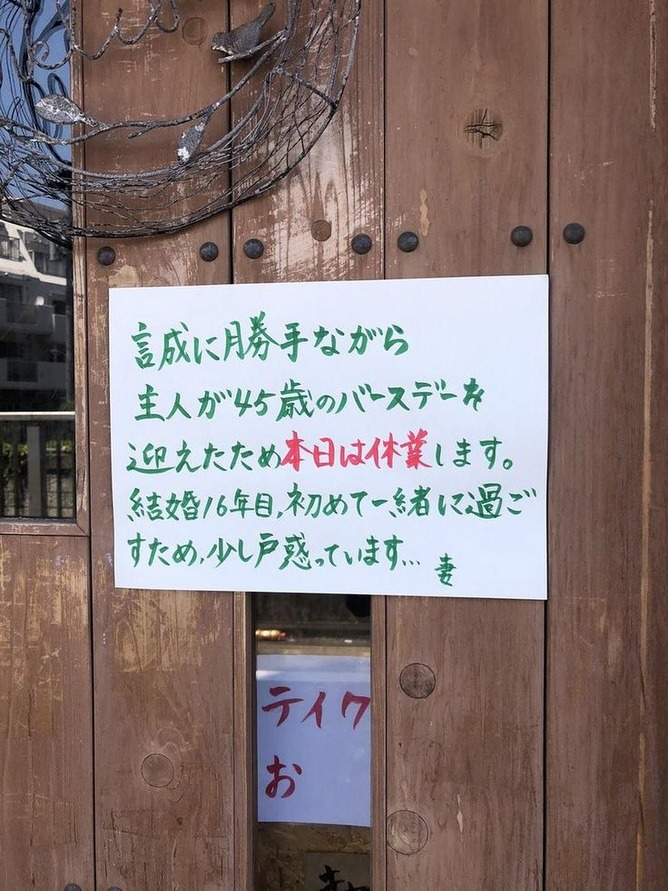 誠に勝手ながら
主人が45歳のバースデーを
迎えたため本日は休業します。
結婚16年目、初めて一緒に過ご
すため、少し戸惑っています… 妻
テイク
お